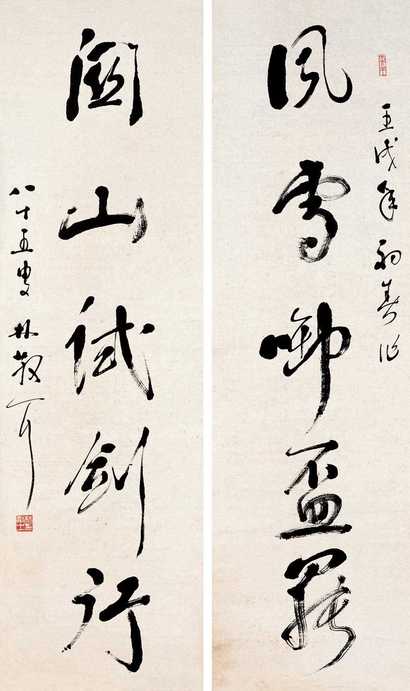 壬戌年初春作
風雪啣盃罷
關山試劍行
八十五叟林散耳